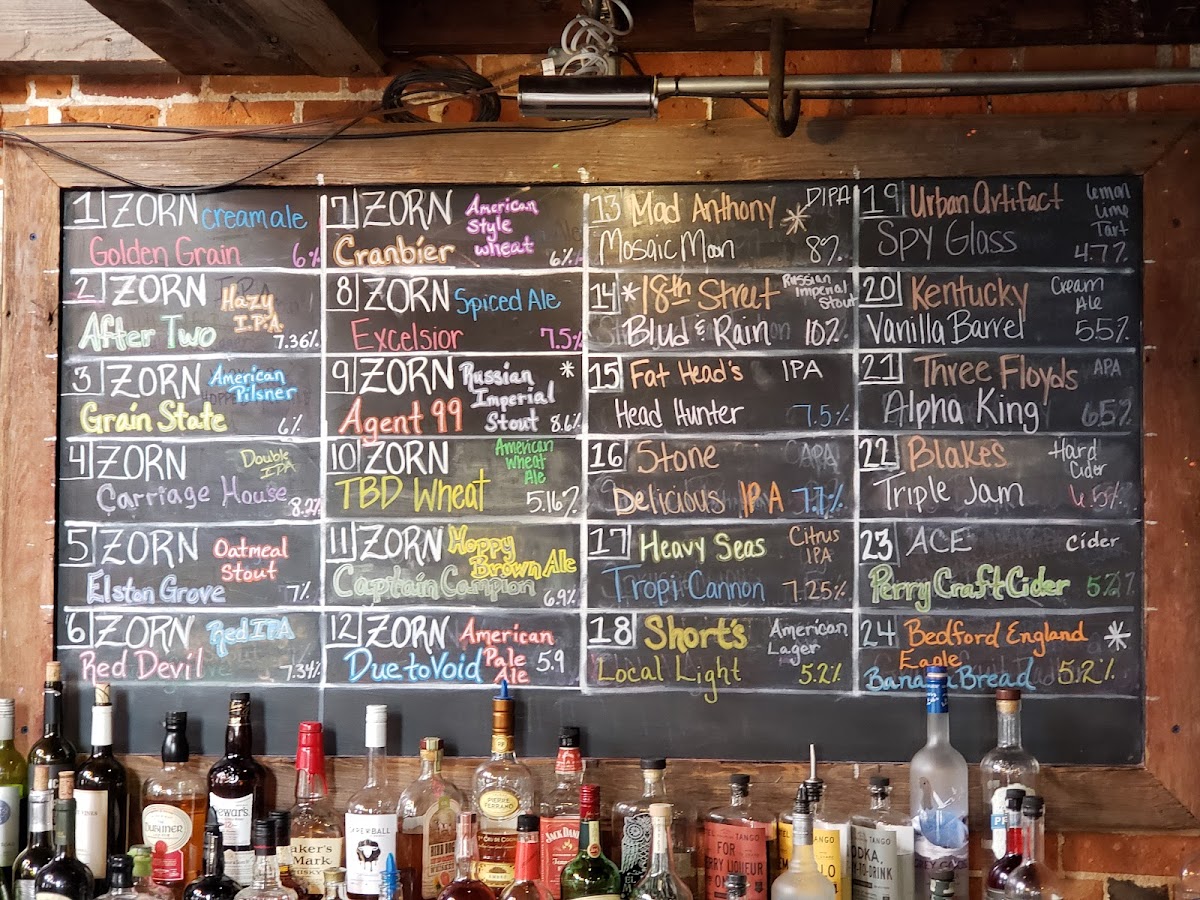 1 ZORN cream ale
Golden Grain 6%
2 ZORN Hazy
I.P.A
After Two 7.36%
3 ZORN American
Pilsner
Grain State 6%
4 ZORN Double
IPA
Carriage House 8.2%
5 ZORN Oatmeal
Stout
Elston Grove 7%
6 ZORN Red IPA
Red Devil 7.34%
7 ZORN American
Style
wheat
Cranbier 6%
8 ZORN Spiced Ale
Excelsior 7.5%
9 ZORN Russian *
Imperial
Stout
Agent 99 8.6%
10 ZORN American
Wheat
Ale
TBD Wheat 5.16%
11 ZORN Hoppy
Brown Ale
Captain Campion 6.9%
12 ZORN American
Pale
Ale
Due to Void 5.9
13 Mad Anthony * DIPA
Mosaic Moon 8%
14 *18th Street Russian
Imperial
Stout
Blud & Rain 10%
15 Fat Head's IPA
Head Hunter 7.5%
16 Stone APA
Delicious IPA 7.7%
17 Heavy Seas Citrus
IPA
Tropi Cannon 7.25%
18 Short's American
Lager
Local Light 5.2%
19 Urban Artifact lemon
lime
Tart
Spy Glass 4.7%
20 Kentucky Cream
Ale
Vanilla Barrel 5.5%
21 Three Floyds APA
Alpha King 6.5%
22 Blakes Hard
Cider
Triple Jam 6.5%
23 ACE Cider
Perry Craft Cider 5%
24 Bedford England *
Eagle
Banana Bread 5.2%
JACK DANIEL
PIERRE
FERRAND
TANGO
FOR
TANGO
TANGO
VODKA,